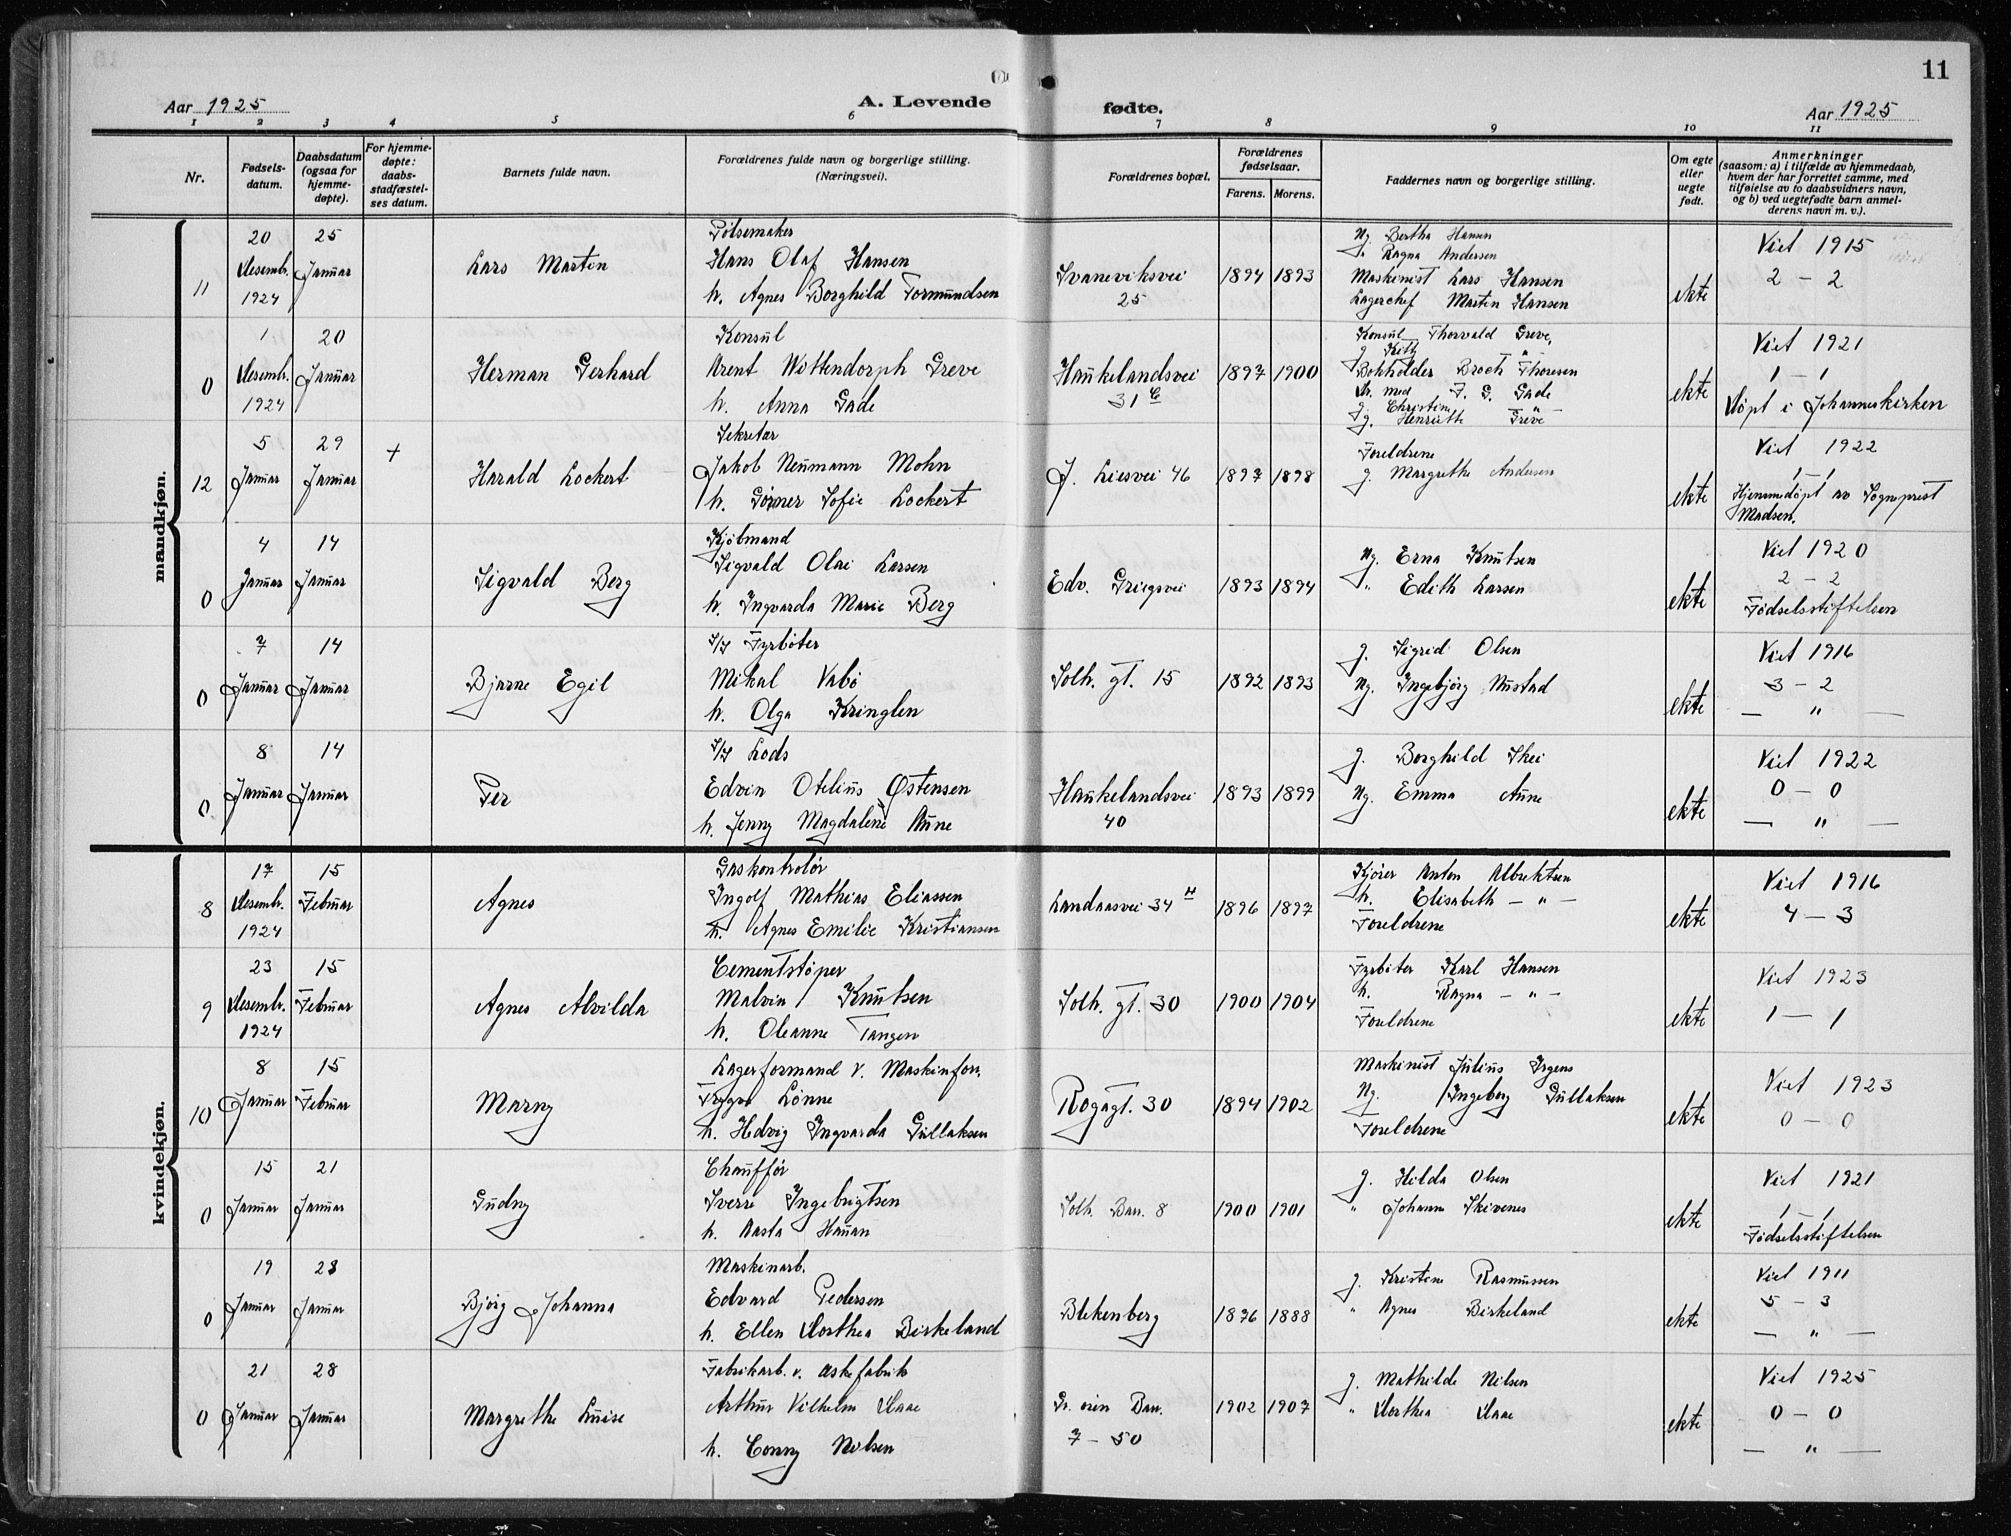 11
Aar 1925 A. Levende fødte. Aar 1925
1 2 3 4 5 6 7 8 9 10 11
Nr.
Fødsels-
datum.
Daabsdatum
(ogsaa for
hjemme-
døpte).
For hjemme-
døpte:
daabs-
stadfæstel-
ses datum.
Barnets fulde navn.
Forældrenes fulde navn og borgerlige stilling.
(Næringsvei).
Forældrenes bopæl.
Forældrenes
fødselsaar.
Farens. Morens.
Faddernes navn og borgerlige stilling.
Om egte
eller
uegte
født.
Anmerkninger
(saasom: a) i tilfælde av hjemmedaab,
hvem der har forrettet samme, med
tilføielse av to daabsvidners navn,
og b) ved uegtefødte barn anmel-
derens navn m. v.).
mandkjøn.
11
20
Desemb.
1924
25
Januar
Lars Martin
Pølsemaker
Hans Olaf Hansen
h. Agnes Borghild Tormundsen
Svaneviksvei
25
1894 1893
Ug. Bertha Hansen
" Ragna Andersen
Maskinist Lars Hansen
Lagerchef Martin Hansen
ekte
Viet 1915
2 - 2
0
1
Desemb.
1924
20
Januar
Herman Gerhard
Konsul
Arent Wittendorph Greve
h. Anna Gade
Haukelandsvei
31 c
1897 1900
Konsul Thorvald Greve,
g. Kitty "
Bokholder Broch Thoresen
F. G. Gade
g. Christine "
g. Henriette Greve
ekte
Viet 1921
1 - 1
Døpt i Johanneskirken
12
5
Januar
29
Januar
+
Harald Lockert
Sekretær
Jakob Neumann Mohn
h. Gørner Sofie Lockert
J. Liesvei 46
1897 1898
Foreldrene
g. Margrethe Andersen
ekte
Viet 1922
1 - 1
Hjemmedøpt av Sogneprest
Madsen.
0
4
Januar
14
Januar
Sigvald Berg
Kjøbmand
Sigvald Olai Larsen
h. Ingvarda Marie Berg
Edv. Griegsvei
1893 1894
Ug. Erna Knutsen
" Edith Larsen
ekte
Viet 1920
2 - 2
Fødselsstiftelsen
0
7
Januar
14
Januar
Bjarne Egil
S/S Fyrbøter
Mikal Vabø
h. Olga Kringlen
Solh. gt. 15
1892 1893
g. Sigrid Olsen
Ug. Ingebjørg Nustad
ekte
Viet 1916
3 - 2
— " —
0
8
Januar
14
Januar
Per
S/S Lods
Edvin Otelius Østensen
h. Jenny Magdalene Aune
Haukelandsvei
40
1893 1899
g. Borghild Skei
Ug. Emma Aune
ekte
Viet 1922
0 - 0
— " —
kvindekjøn.
8
17
Desemb.
1924
15
Februar
Agnes
Gaskontrolør
Ingolf Mathias Eliassen
h. Agnes Emilie Kristiansen
Landaasvei 34 H
1896 1897
Kjører Anton Albriktsen
h. Elisabeth - " -
Foreldrene
ekte
Viet 1916
4 - 3
9
23
Desemb.
1924
15
Februar
Agnes Alvilda
Cementstøper
Malvin Knutsen
h. Oleanne Tangen
Solh. gt. 30
1900 1904
Fyrbøter Karl Hansen
h. Ragna - " -
Foreldrene
ekte
Viet 1923
1 - 1
10
8
Januar
15
Februar
Marny
Lagerformand v. Maskinforr.
Trygve Lønne
h. Hedvig Ingvarda Gullaksen
Rogagt. 30
1894 1902
Maskinist Julius Irgens
Ug. Ingeborg Gullaksen
Foreldrene
ekte
Viet 1923
0 - 0
0
15
Januar
21
Januar
Gudny
Chauffør
Sverre Ingebrigtsen
h. Aasta Hauan
Solh. Bar. 8
1900 1901
g. Hilda Olsen
" Johanne Skivenes
ekte
Viet 1921
1 - 1
Fødselsstiftelsen
0
19
Januar
23
Januar
Bjørg Johanna
Maskinarb.
Edvard Pedersen
h. Ellen Dorthea Birkeland
Blekenberg
1876 1888
g. Kristine Rasmussen
" Agnes Birkeland
ekte
Viet 1911
5 - 3
— " —
0
21
Januar
28
Januar
Margrethe Luise
Fabrikarb. v. Æskefabrik
Arthur Vilhelm Daae
h. Conny Nilsen
7 - 50
1902 1907
g. Mathilde Nilsen
" Dorthea Daae
ekte
Viet 1925
0 - 0
— " —